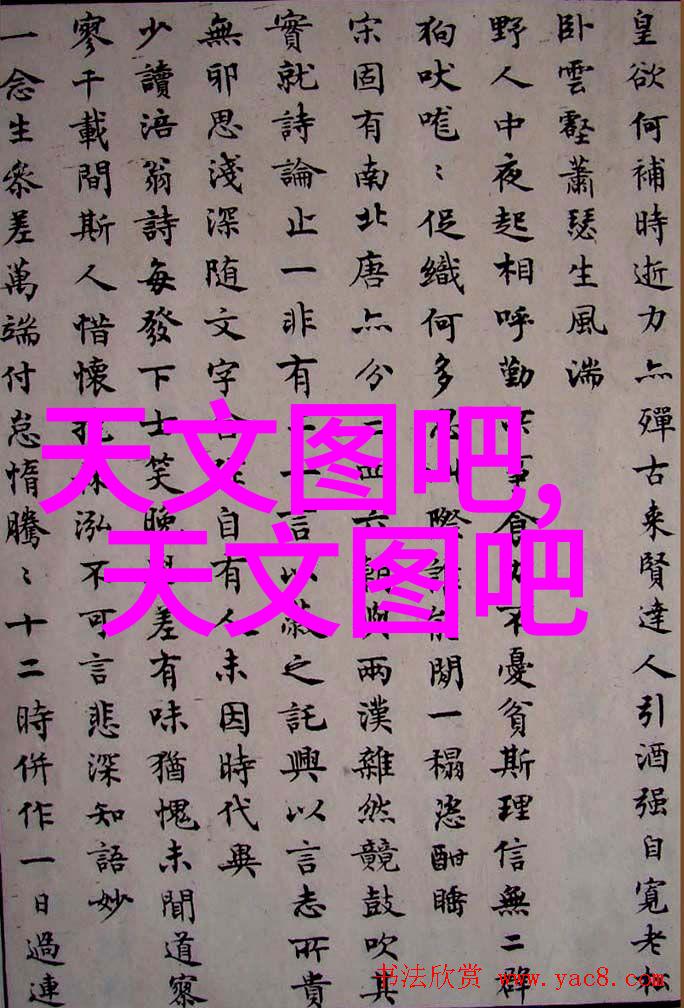 皇欲何補時逝力亦殫古来賢達人引酒强自寬老
卧雲壑蕭瑟生風湍
野人中夜起相呼勤事食不憂貧斯理信無二群
狗吠嘊〻促織何多閉一榻恣酣睡
宋固有南北唐亦分两漢雜然競鼓吹其
實就詩論止一非有一言以蔽之託興以言志所貴
無邪思淺深随文字自有人未因時代異
少讀涪翁詩每發下士笑晚差有味猶愧未聞道寥
寥千載間斯人惜懷抱泓不可言悲深知語妙
一念生參差萬端付怠惰騰〻十二時併作一日過連
天文图吧,
天文图吧
书法欣赏 www.yac8.com